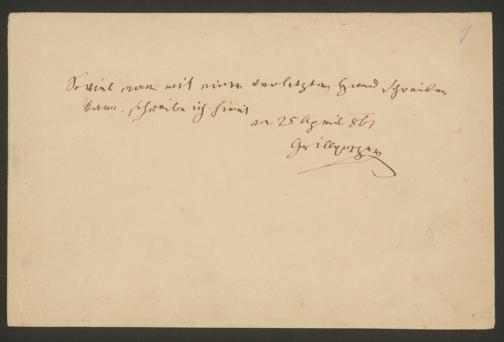 1
Soviel man mit einer verletzten Hand schreiben
kann. schreibe ich hiemit
am 25 April 861
Grillparzer